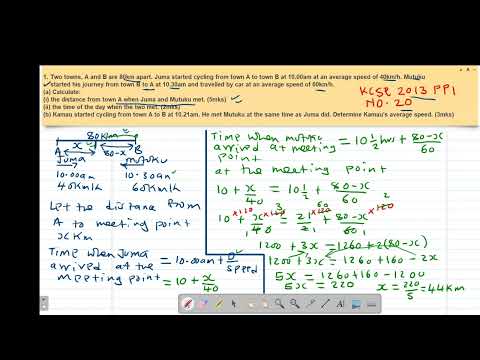 1. Two towns, A and B are 80km apart. Juma started cycling from town A to town B at 10.00am at an average speed of 40km/h. Mutuku
started his journey from town B to A at 10.30am and travelled by car at an average speed of 60km/h.
(a) Calculate:
(i) the distance from town A when Juma and Mutuku met. (5mks)
(ii) the time of the day when the two met. (2mks)
(b) Kamau started cycling from town A to B at 10.21am. He met Mutuku at the same time as Juma did. Determine Kamau's average speed. (3mks)
KCSE 2013 PP1
NO. 20
80km
x
80-x
A
B
Juma
Mutuku
10.00am
10.30am
40km/h
60km/h
Let the distance from
A to meeting point
x km
Time when Juma
arrived at the
meeting point
= 10.00am + D/speed
= 10 + x/40
Time when Mutuku
arrived at meeting
point
= 10 1/2 hrs + 80-x/60
at the meeting point
10 + x/40 = 10 1/2 + 80-x/60
10 x120 + x/40 x120 3 = 21/2 x120 60 + 80-x/60 x120 2
1200 + 3x = 1260 + 2(80-x)
1200 + 3x = 1260 + 160 - 2x
5x = 1260 + 160 - 1200
5x = 220
x = 220/5 = 44km